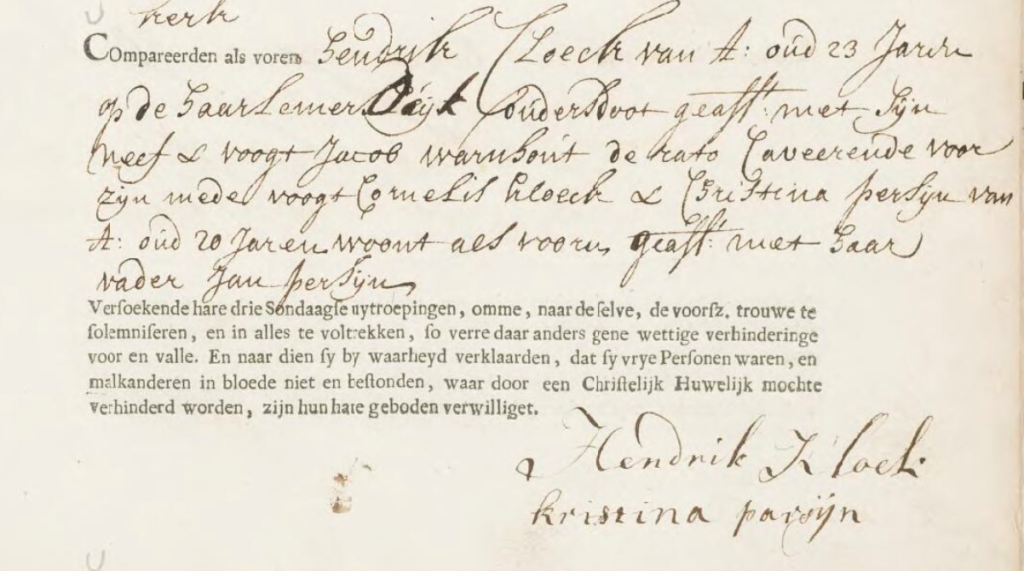 kerk
Compareerden als voren Hendrik Cloeck van A: oud 23 Jaren
op de Haarlemer Dÿk ouders doot geasst: met sijn
neef & voogt Jacob warnhout de rato Caveerende voor
zijn mede voogt Cornelis Kloeck & Christina persijn van
A: oud 20 Jaren woont als vooren geasst: met haar
vader Jan persijn
Versoekende hare drie Sondaagse uytroepingen, omme, naar de selve, de voorsz. trouwe te
solemniseren, en in alles te voltrekken, so verre daar anders gene wettige verhinderinge
voor en valle. En naar dien sy by waarheyd verklaarden, dat sy vrye Personen waren, en
malkanderen in bloede niet en bestonden, waar door een Christelijk Huwelijk mochte
verhinderd worden, zijn hun hare geboden verwilliget.
Hendrik Kloek
kristina parsijn